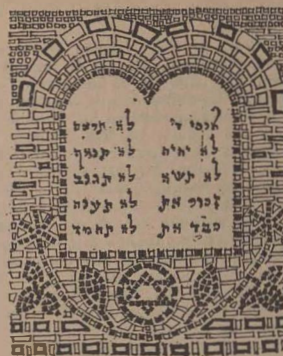 אנכי ה'
לא יהיה
לא תשא
זכור את
כבד את
לא תרצח
לא תנאף
לא תגנב
לא תענה
לא תחמד